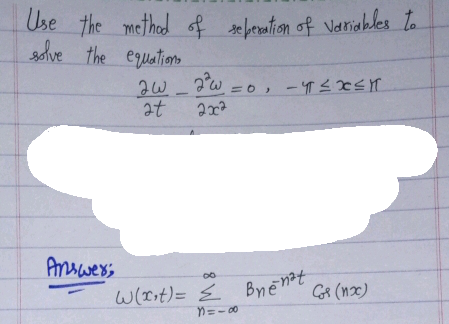 Use the method of seperation of variables to
solve the equation
∂w/∂t - ∂²w/∂x² = 0, -π ≤ x ≤ π
Answer;
w(x,t) = Σ_{n=-∞}^{∞} Bn e^{-n²t} Cos(nx)